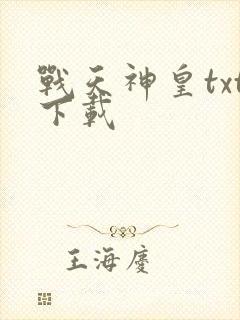 戰天神皇txt
下載
王海慶